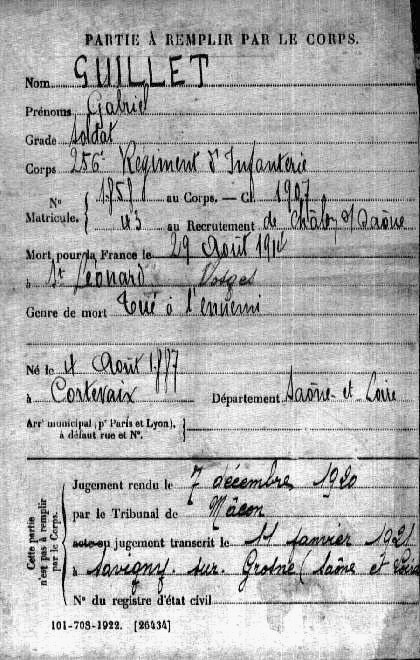 PARTIE À REMPLIR PAR LE CORPS.
Nom GUILLET
Prénoms Gabriel
Grade Soldat
Corps 256e Régiment d'Infanterie
N° Matricule. { 1858 au Corps. — Cl. 1907
43 au Recrutement de Châlon s/ Saône
Mort pour la France le 29 Août 1914
à St Léonard Vosges
Genre de mort Tué à l'ennemi
Né le 4 Août 1887
à Cortevaix Département Saône-et Loire
Arrt municipal (pr Paris et Lyon),
à défaut rue et N°.
Cette partie n'est pas à remplir par le Corps.
Jugement rendu le 7 décembre 1920
par le Tribunal de Mâcon
acte ou jugement transcrit le 11 janvier 1921
à Savigny-sur-Grosne (Saône et Loire
N° du registre d'état civil
101-708-1922. [26434]